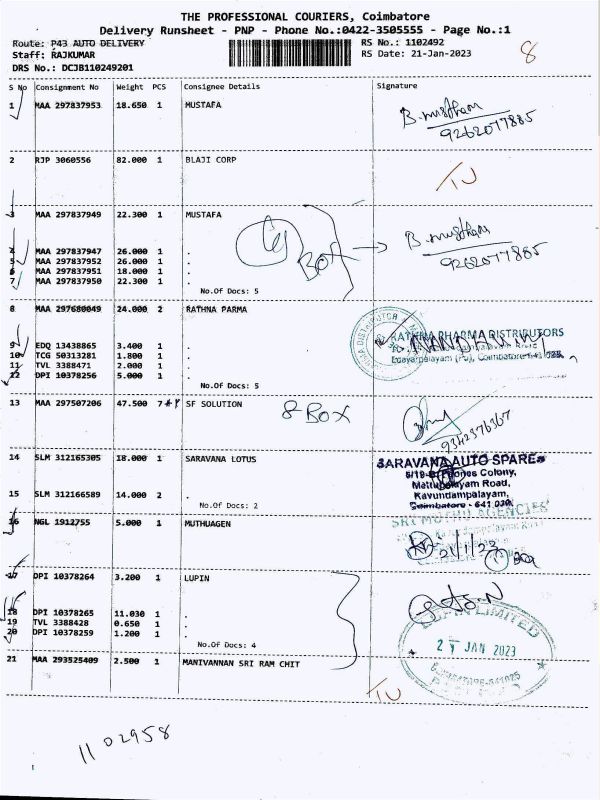 THE PROFESSIONAL COURIERS, Coimbatore
Delivery Runsheet - PNP - Phone No.:0422-3505555 - Page No.:1
Route: P43 AUTO DELIVERY
RS No.: 1102492
Staff: RAJKUMAR
RS Date: 21-Jan-2023
8
DRS No.: DCJB110249201
S No Consignment No Weight PCS Consignee Details Signature
1 MAA 297837953 18.650 1 MUSTAFA
9262077885
2 RJP 3060556 82.000 1 BLAJI CORP
3 MAA 297837949 22.300 1 MUSTAFA
BOX
4 MAA 297837947 26.000 1 .
5 MAA 297837952 26.000 1 .
9262077885
6 MAA 297837951 18.000 1 .
7 MAA 297837950 22.300 1 .
No.Of Docs: 5
8 MAA 297680049 24.000 2 RATHNA PARMA
RATHNA PHARMA DISTRIBUTORS
9 EDQ 13438865 3.400 1 .
10 TCG 50313281 1.800 1 .
11 TVL 3388471 2.000 1 .
12 DPI 10378256 5.000 1 .
No.Of Docs: 5
13 MAA 297507206 47.500 7 SF SOLUTION
8 BOX
14 SLM 312165305 18.000 1 SARAVANA LOTUS
SARAVANA AUTO SPARES
Colony,
Mettupalayam Road,
Kavundampalayam,
Coimbatore - 641 030
15 SLM 312166589 14.000 2 .
No.Of Docs: 2
SRI MUTHU AGENCIES
16 NGL 1912755 5.000 1 MUTHUAGEN
21/1/23
17 DPI 10378264 3.200 1 LUPIN
18 DPI 10378265 11.030 1 .
19 TVL 3388428 0.650 1 .
20 DPI 10378259 1.200 1 .
No.Of Docs: 4
LUPIN LIMITED
JAN 2023
21 MAA 293525409 2.500 1 MANIVANNAN SRI RAM CHIT
1102958